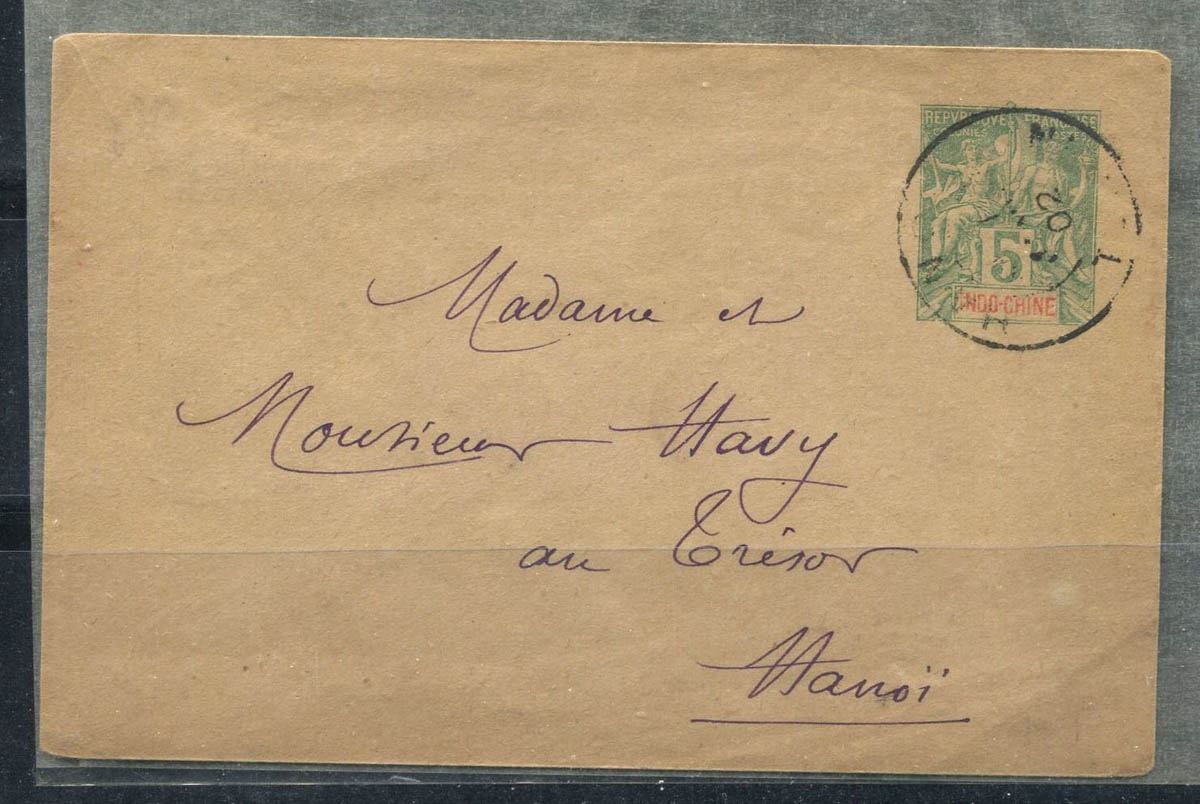 REPVBLIQVE FRANÇAISE
COLONIES POSTES
02
5
INDO-CHINE
Madame et
Monsieur Havy
au Trésor
Hanoï